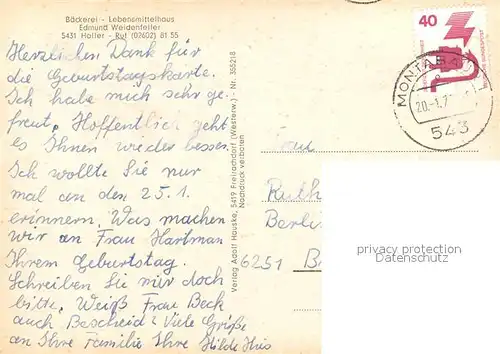 Bäckerei - Lebensmittelhaus
Edmund Weidenfeller
5431 Holler - Ruf (02602) 81 55
Herzlichen Dank für
die Geburtstagskarte.
Ich habe mich sehr ge-
freut. Hoffentlich geht
es Ihnen wieder besser.
Ich wollte Sie nur
mal an den 25.1.
erinnern. Was machen
wir an Frau Hartman
Ihrem Geburtstag.
Schreiben Sie mir doch
bitte. Weiß Frau Beck
auch Bescheid? Viele Grüße
an Ihre Familie Ihre Hilde
Verlag Adolf Hauske, 5419 Freirachdorf (Westerw.) - Nr. 355218
Nachdruck verboten
40
MONTABAUR
20.-1.7
543
Frau
Ruth
Berlin
6251
privacy protection
Datenschutz